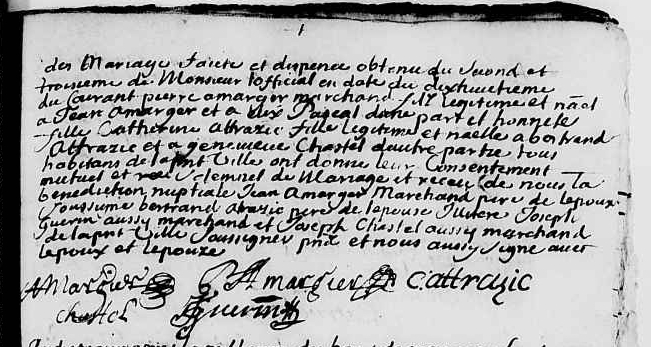 des Mariage faitte et dispence obtenu du second et
troisieme de Monsieur l'official en date du dixhuitieme
du Courant pierre amarger marchand filz legitime et nãel
a Jean Amarger et a Pascal dune part et honnete
fille Catherine Attrazic fille legitime et naelle a bertrand
Attrazic et a genevieve Chastel dautre partie tous
habitans de la pnt Ville ont donne leur Consentement
mutuel et solemnel de Mariage et receu de nous la
benediction nuptiale Jean Amarger Marchand pere de lepoux
soussigne bertrand atrazic pere de lepouse Joseph
Guerin aussy marchand et Joseph Chastel aussy marchand
de la pnt Ville soussignes et nous aussy signe avec
lepoux et lepouze
AMargier PAmargier C:attrazic
chastel JGuerin